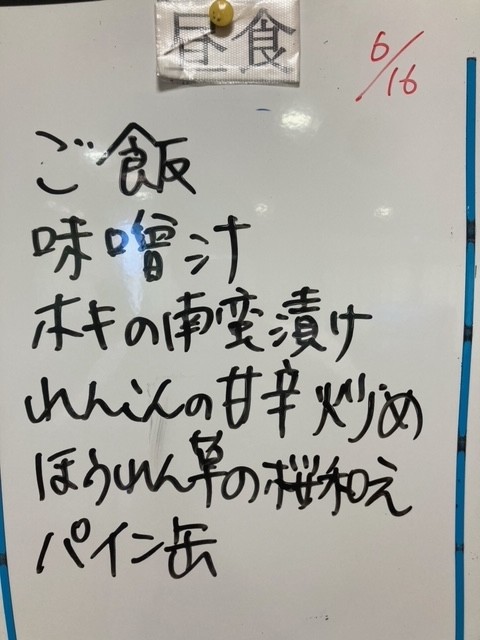 昼食
6/16
ご飯
味噌汁
ホキの南蛮漬け
れんこんの甘辛炒め
ほうれん草の桜和え
パイン缶